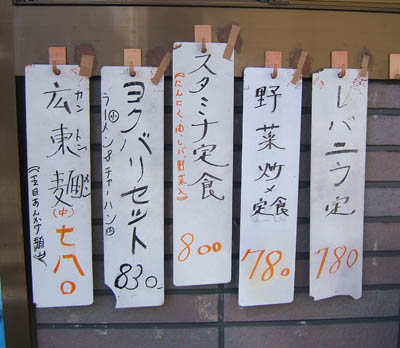 レバニラ定
780
野菜炒め定食
780
スタミナ定食
800
ヨクバリセット
ラーメン&チャーハン
830-
広東麺(中)
カントンメン
七八〇
(五目あんかけ麺)